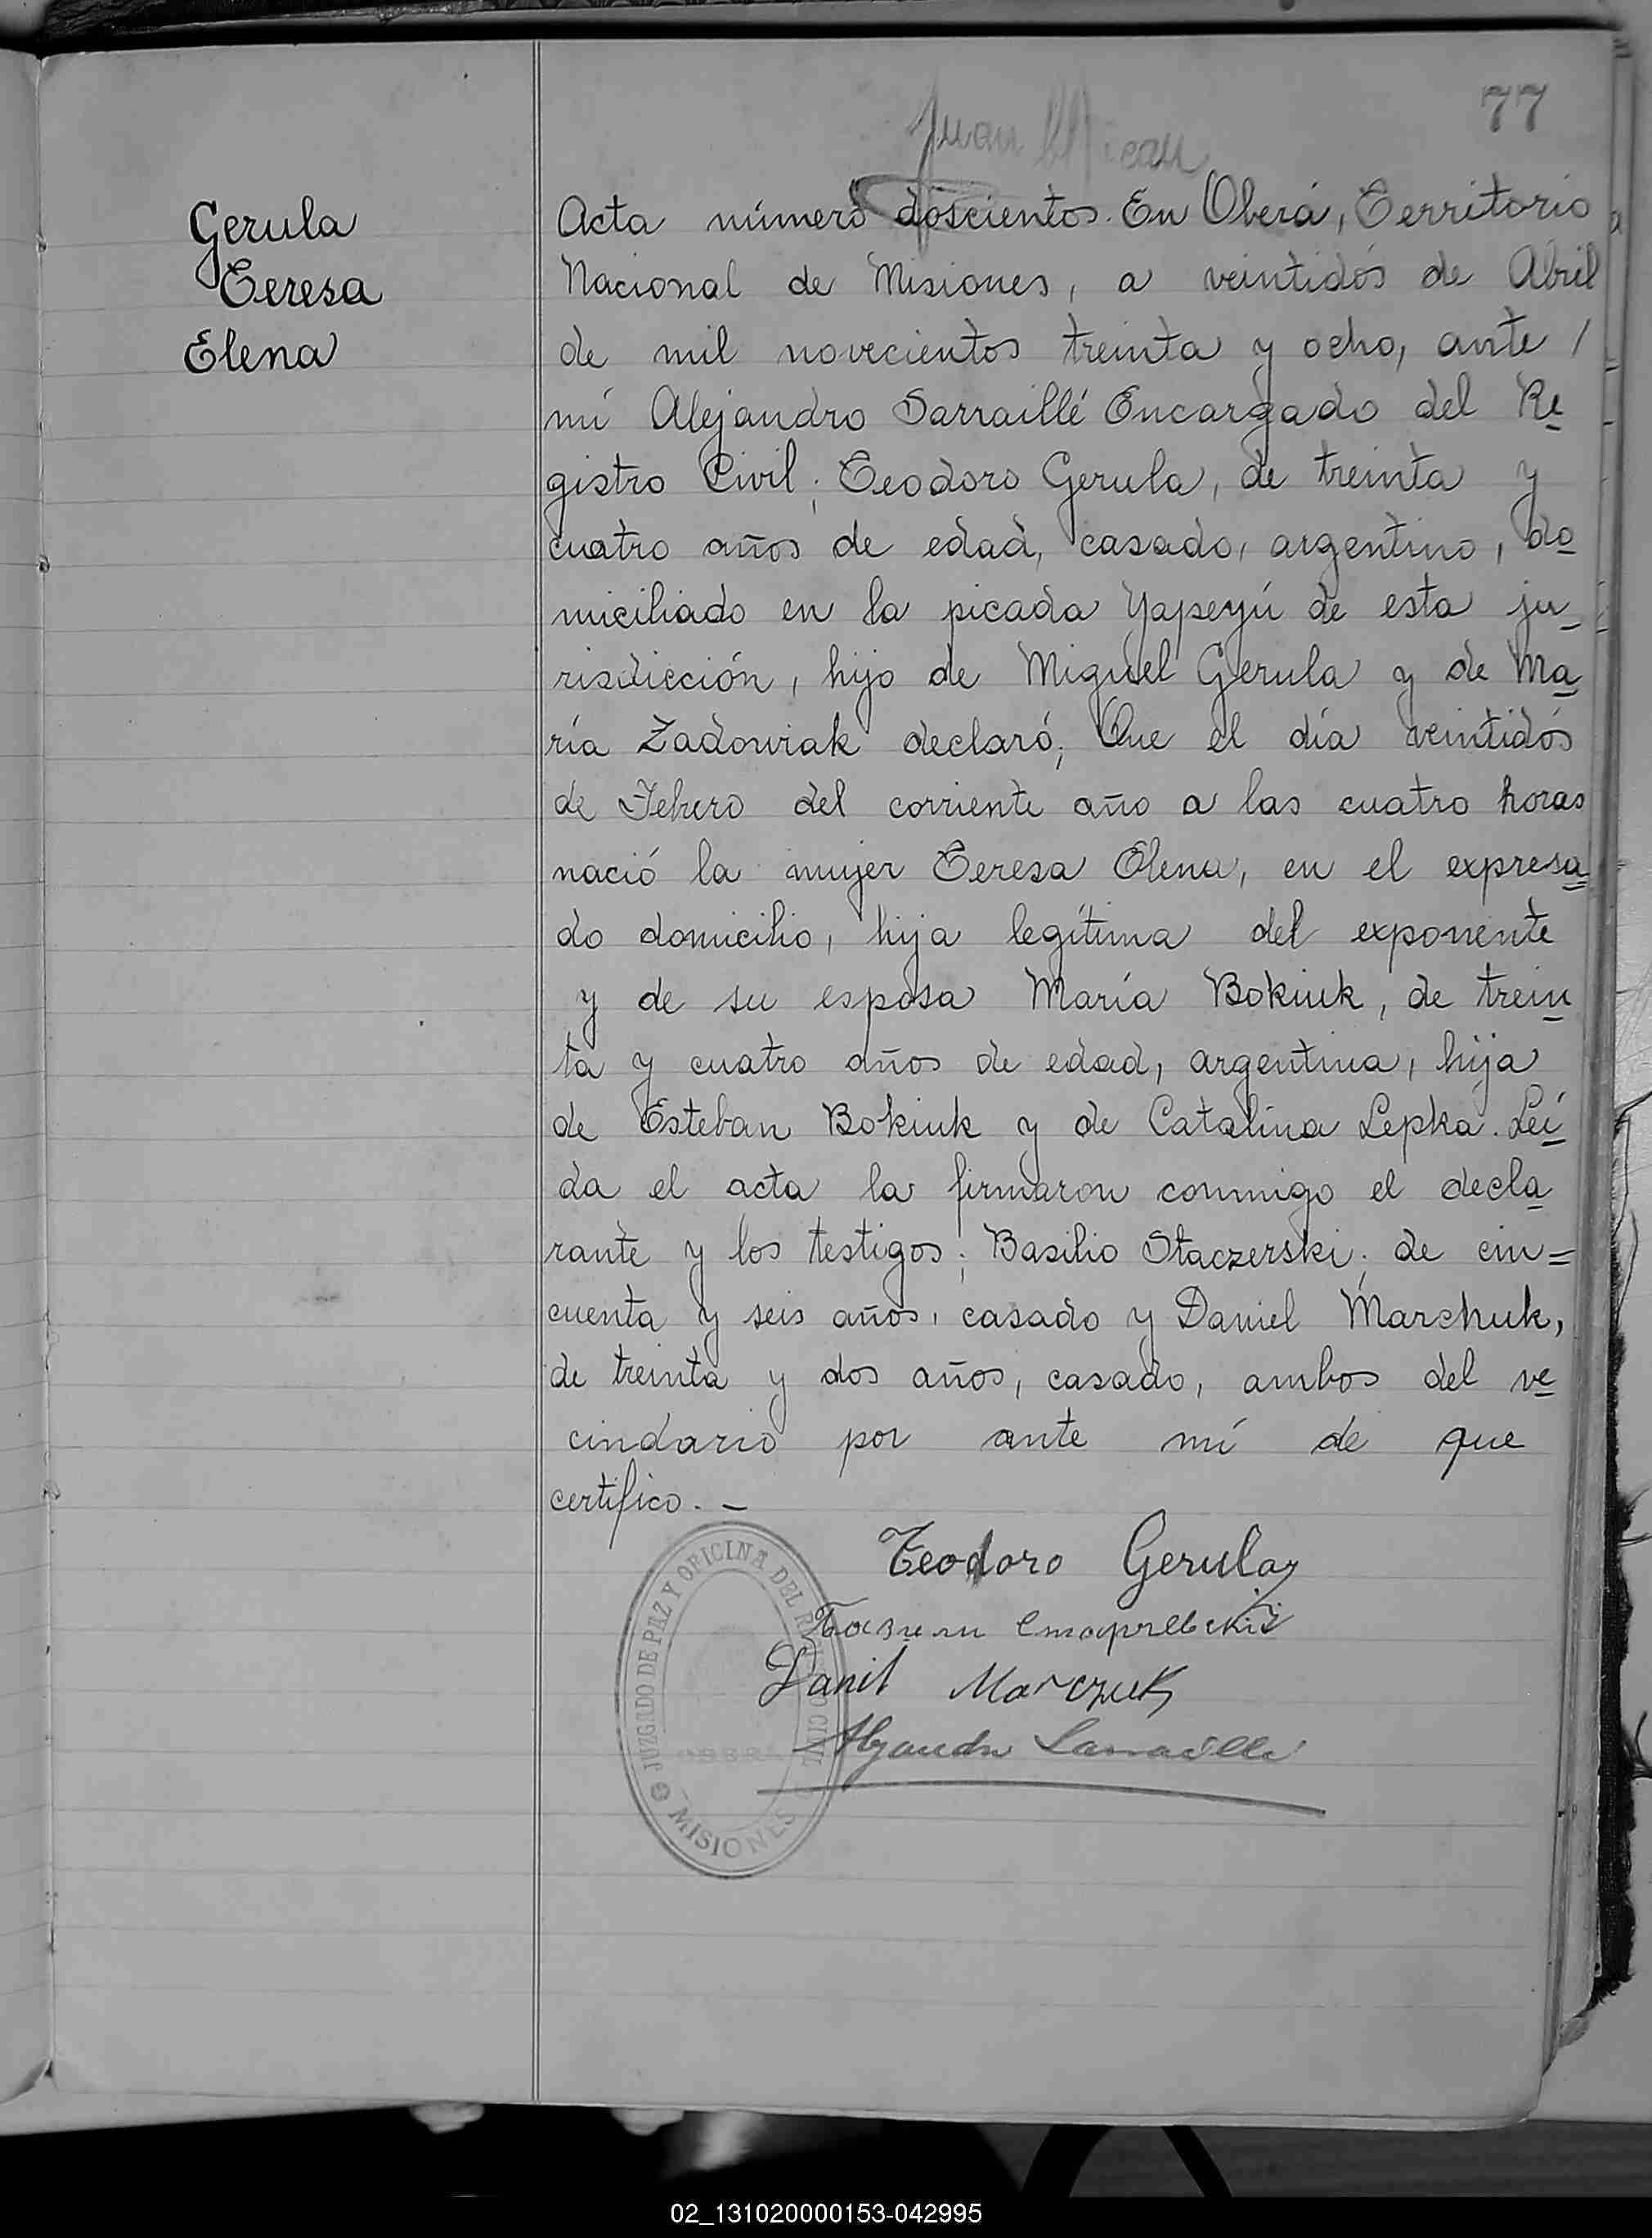 77
Juan
Gerula
Teresa
Elena
Acta número doscientos. En Oberá, Territorio
Nacional de Misiones, a veintidós de Abril
de mil novecientos treinta y ocho, ante /
mí Alejandro Sarraillé Encargado del Re
gistro Civil; Teodoro Gerula, de treinta y
cuatro años de edad, casado, argentino, do
miciliado en la picada Yapeyú de esta ju-
risdicción, hijo de Miguel Gerula y de Ma
ría Zadowiak declaró; Que el día veintidós
de Febrero del corriente año a las cuatro horas
nació la mujer Teresa Elena, en el expresa
do domicilio, hija legítima del exponente
y de su esposa María Bokiuk, de trein
ta y cuatro años de edad, argentina, hija
de Esteban Bokiuk y de Catalina Lepka. Leí
da el acta la firmaron conmigo el decla
rante y los testigos; Basilio Staczerski; de cin=
cuenta y seis años, casado y Daniel Marchuk,
de treinta y dos años, casado, ambos del ve
cindario por ante mí de que
certifico. –
Teodoro Gerula
Danil Marczuk
Alejandro Sarraillé
JUZGADO DE PAZ Y OFICINA DEL REGISTRO CIVIL
OBERA
MISIONES
02_131020000153-042995